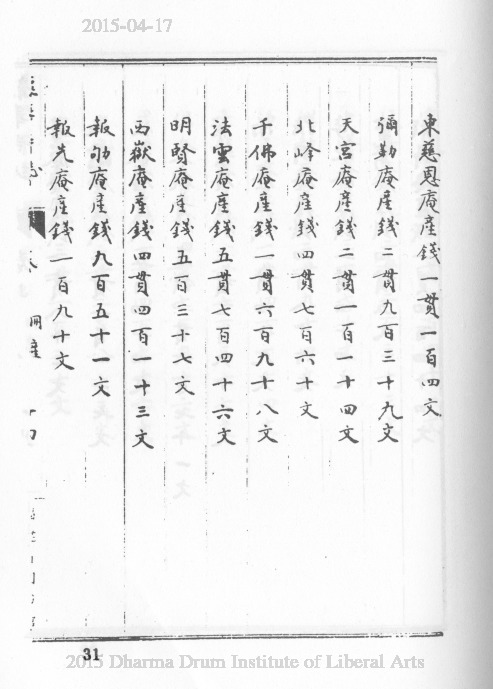 2015-04-17
東慈恩庵產錢一貫一百四文
彌勒庵產錢二貫九百三十九文
天宮庵產錢二貫一百一十四文
北峰庵產錢四貫七百六十文
千佛庵產錢一貫六百九十八文
法雲庵產錢五貫七百四十六文
明賢庵產錢五百三十七文
西嶽庵產錢四貫四百一十三文
報劬庵產錢九百五十一文
報先庵產錢一百九十文
田產
31
2015 Dharma Drum Institute of Liberal Arts